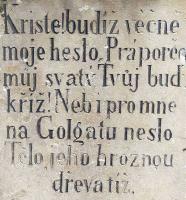 Kriste! budiž věčně
moje heslo, Praporec
můj svatý Tvůj buď
kříž! Neb i pro mne
na Golgatu neslo
Tělo jeho hroznou
dřeva tíž.